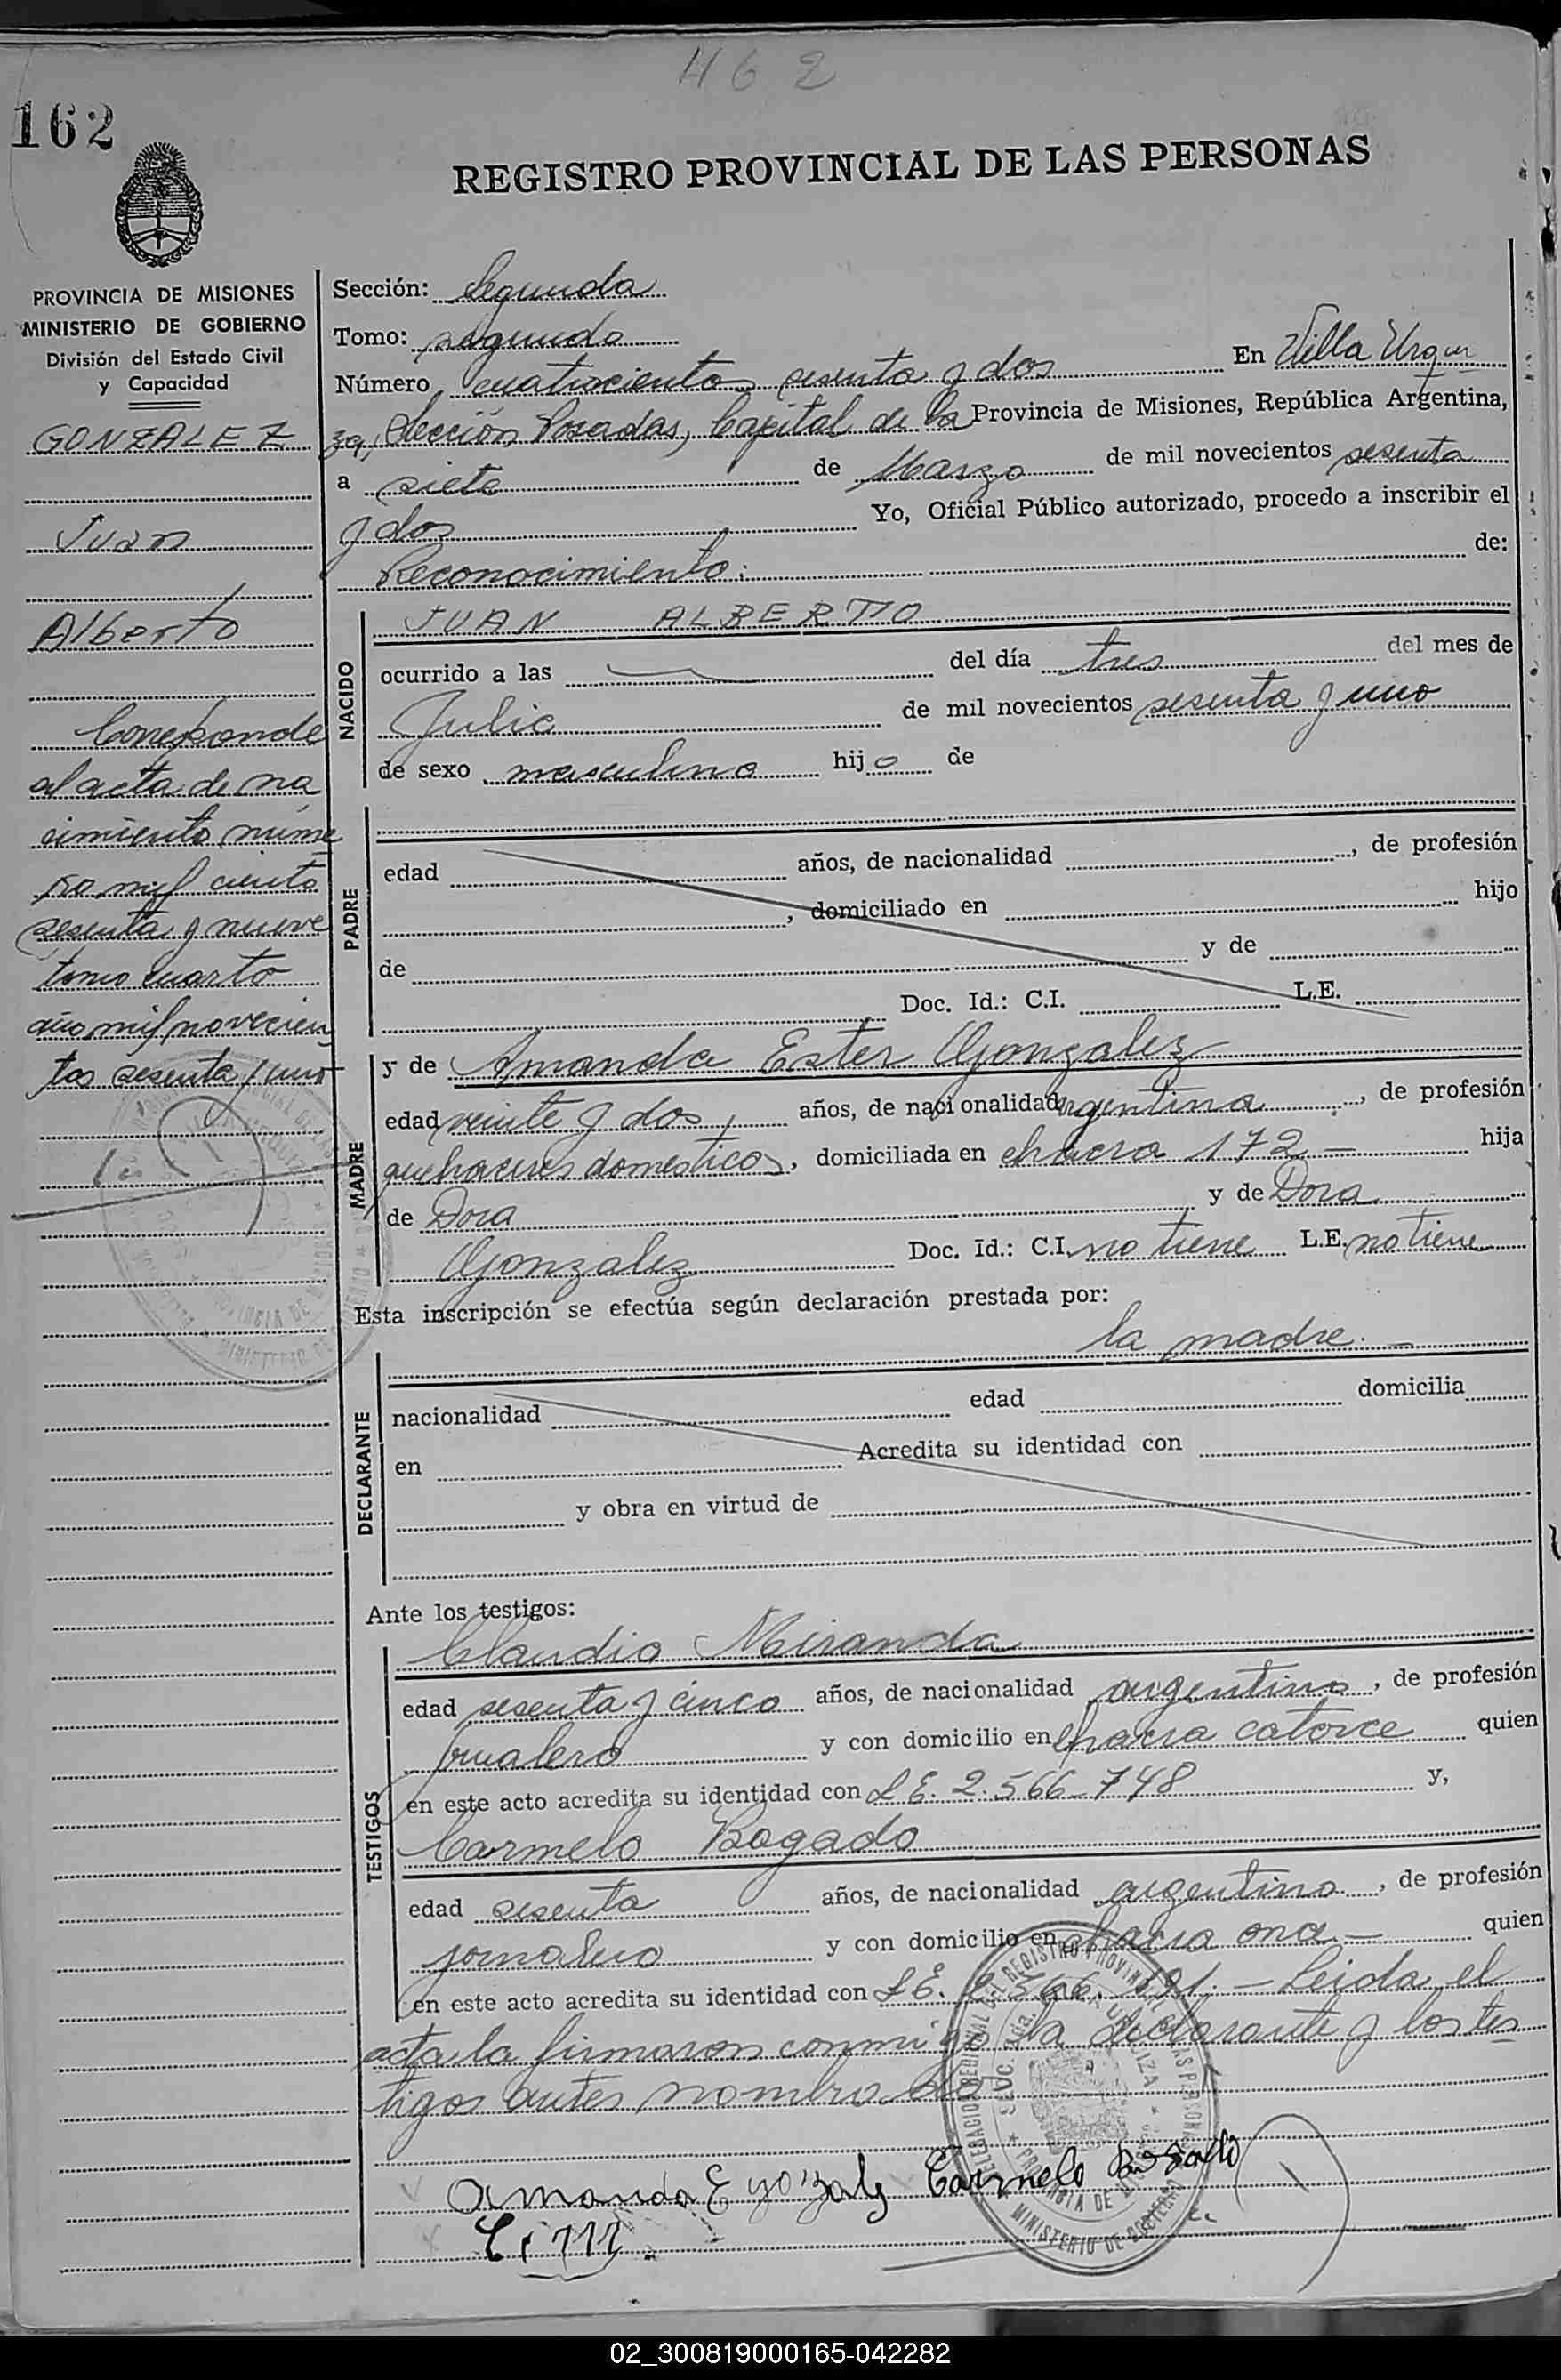 462
162
REGISTRO PROVINCIAL DE LAS PERSONAS
PROVINCIA DE MISIONES
MINISTERIO DE GOBIERNO
División del Estado Civil
y Capacidad
GONZALEZ
Juan
Alberto
Corresponde
al acta de na
cimiento núme
ro mil ciento
sesenta y nueve
tomo cuarto
año mil novecien
tos sesenta y uno
Sección: Segunda
Tomo: segundo
Número cuatrocientos sesenta y dos En Villa Urqui
za, Sección Posadas, Capital de la Provincia de Misiones, República Argentina,
a siete de Marzo de mil novecientos sesenta
y dos Yo, Oficial Público autorizado, procedo a inscribir el
Reconocimiento: de:
NACIDO
JUAN ALBERTO
ocurrido a las del día tres del mes de
Julio de mil novecientos sesenta y uno
de sexo masculino hijo de
PADRE
edad años, de nacionalidad , de profesión
, domiciliado en hijo
de y de
Doc. Id.: C.I. L.E.
MADRE
y de Amanda Ester Gonzalez
edad veinte y dos, años, de nacionalidad argentina, de profesión
quehaceres domesticos, domiciliada en chacra 172 - hija
de Dora y de Dora
Gonzalez Doc. Id.: C.I. no tiene L.E. no tiene
Esta inscripción se efectúa según declaración prestada por:
la madre. -
DECLARANTE
nacionalidad edad domicilia
en Acredita su identidad con
y obra en virtud de
Ante los testigos:
TESTIGOS
Claudio Miranda
edad sesenta y cinco años, de nacionalidad argentino, de profesión
jornalero y con domicilio en chacra catorce quien
en este acto acredita su identidad con L E. 2.566-748 y,
Carmelo Bogado
edad sesenta años, de nacionalidad argentino, de profesión
jornalero y con domicilio en chacra once - quien
en este acto acredita su identidad con L E. - Leida el
acta la firmaron conmigo la declarante y los tes
tigos antes nombrados
Amanda E gonzalz Carmelo Bogado
C. M.
02_300819000165-042282